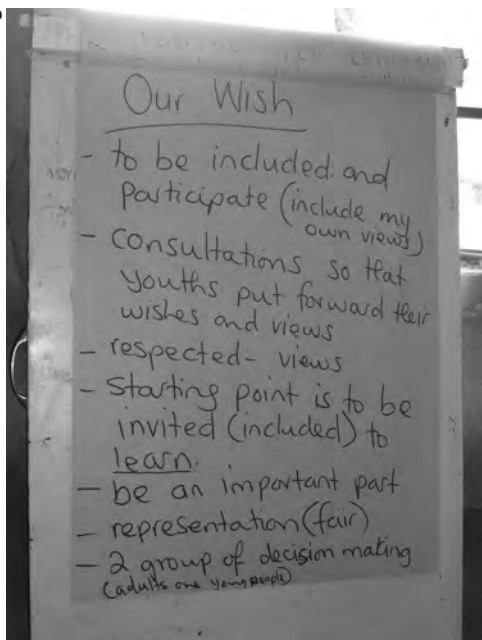 Our Wish
- to be included and
participate (include my
own views)
- consultations so that
youths put forward their
wishes and views
- respected - views
- starting point is to be
invited (included) to
learn.
- be an important part
- representation (fair)
- 2 group of decision making
(adults one young people)